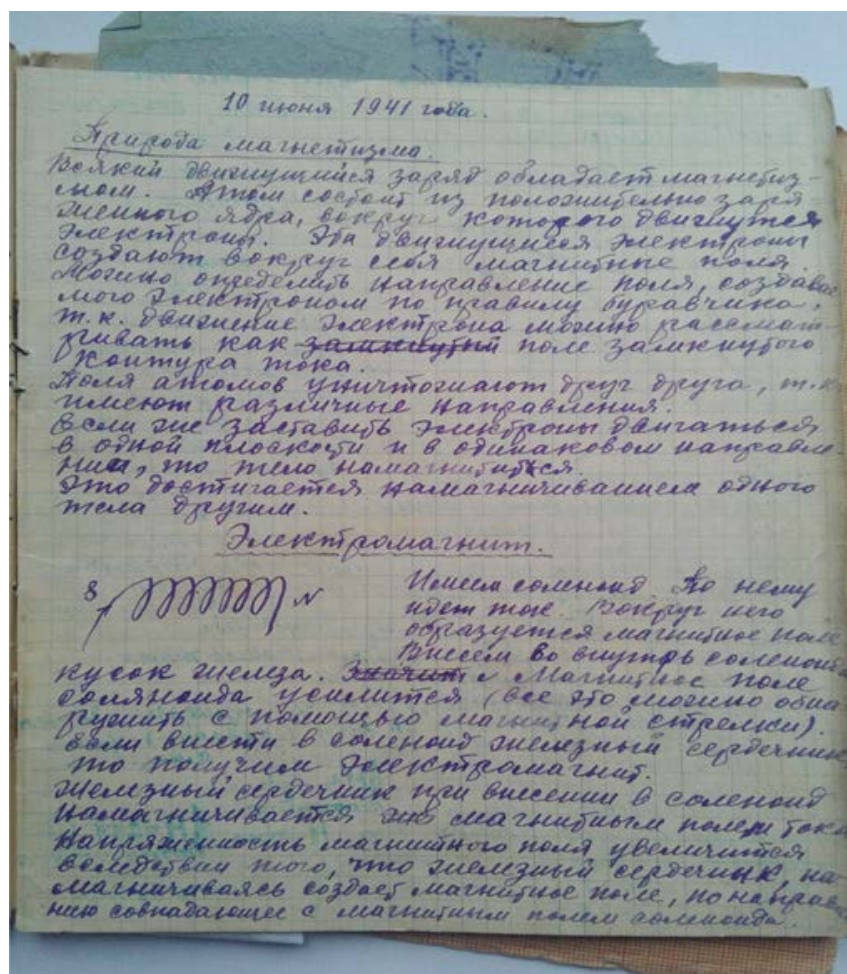 10 июня 1941 года.
Природа магнетизма.
Всякий движущийся заряд обладает магнетиз-
мом. Атом состоит из положительно заря-
женного ядра, вокруг которого движутся
электроны. Эти движущиеся электроны
создают вокруг себя магнитные поля.
Можно определить направление поля, создавае
мого электроном по правилу буравчика,
т.к. движение электрона можно рассмат-
ривать как замкнутый поле замкнутого
контура тока.
Поля атомов уничтожают друг друга, т.к.
имеют различные направления.
Если же заставить электроны двигаться
в одной плоскости и в одинаковом направле-
нии, то тело намагнититься.
Это достигается намагничиванием одного
тела другим.
Электромагнит.
S N
Имеем соленоид. По нему
идет ток. Вокруг него
образуется магнитное поле
Внесем во внутрь соленоида
кусок железа. Значит Магнитное поле
соляноида усилится (все это можно обна
ружить с помощью магнитной стрелки).
Если внести в соленоид железный сердечник,
то получим электромагнит.
Железный сердечник при внесении в соленоид
намагничивается магнитным полем тока
Напряженность магнитного поля увеличится
вследствии того, что железный сердечник, на
магничиваясь создает магнитное поле, по направле
нию совпадающее с магнитным полем соленоида.